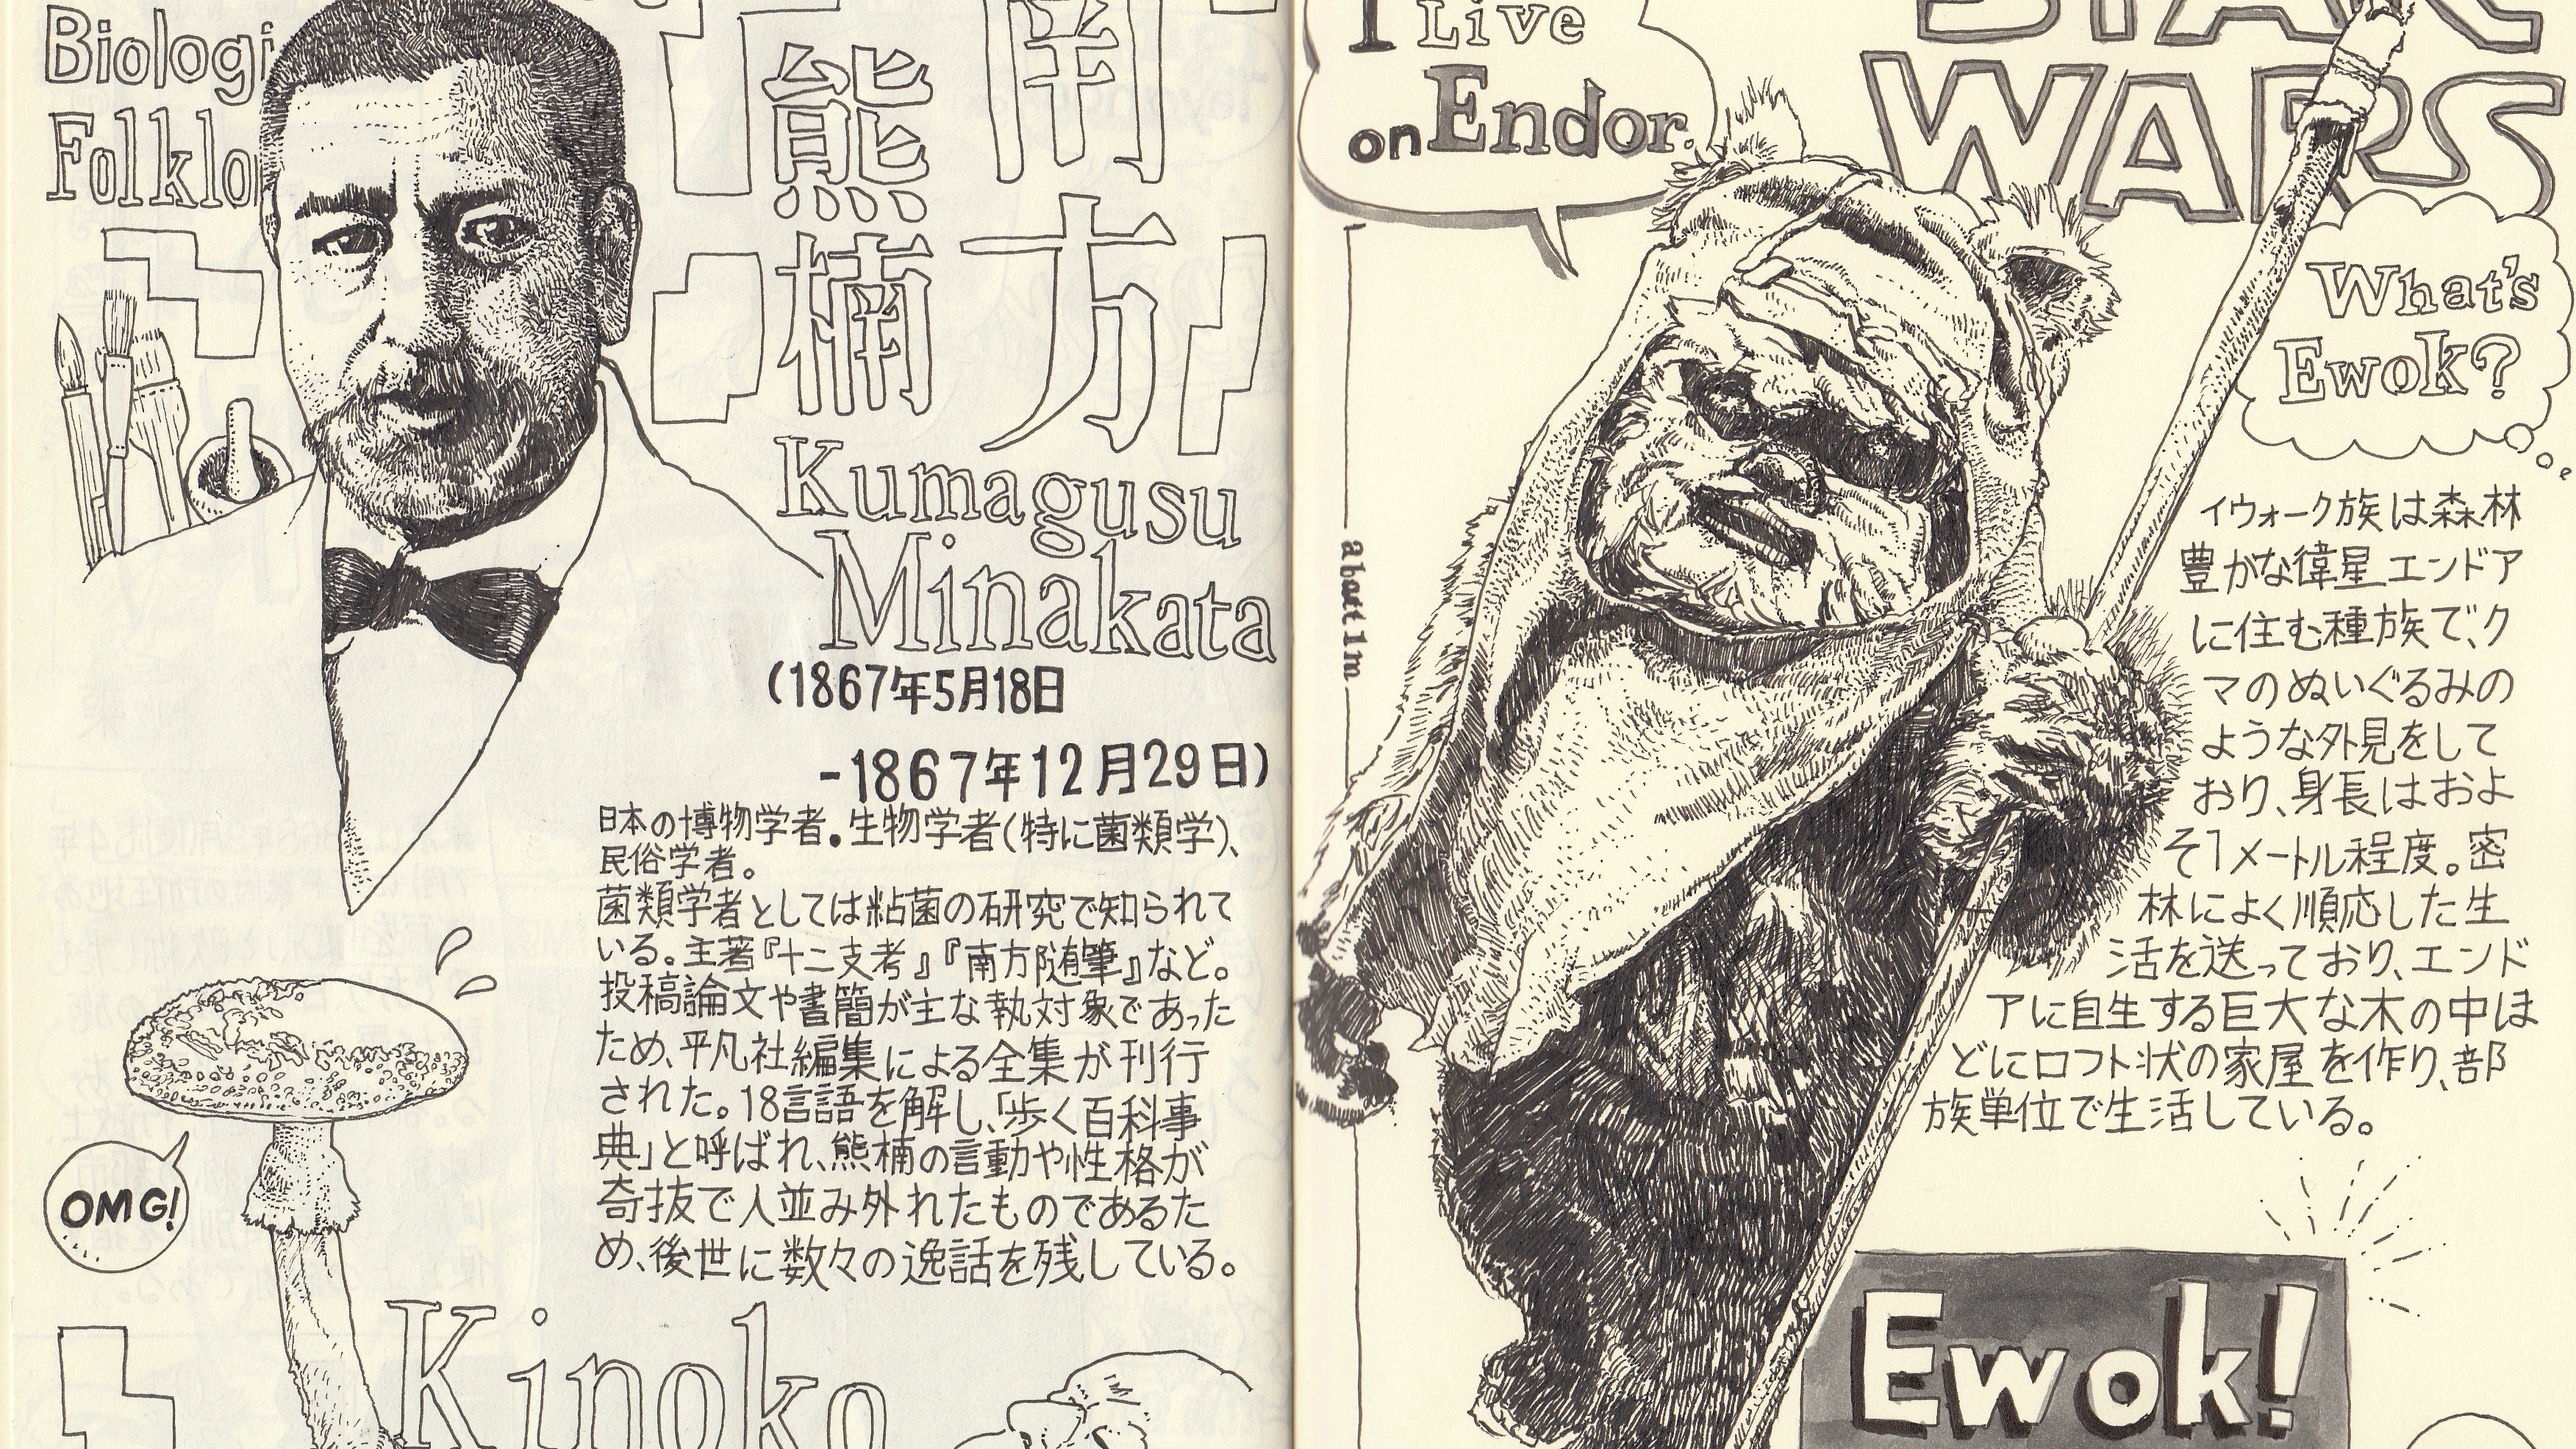 Biologi
Folklo
南方
熊楠
Kumagusu
Minakata
(1867年5月18日
-1867年12月29日)
日本の博物学者。生物学者(特に菌類学)、
民俗学者。
菌類学者としては粘菌の研究で知られて
いる。主著『十二支考』『南方随筆』など。
投稿論文や書簡が主な執対象であった
ため、平凡社編集による全集が刊行
された。18言語を解し、「歩く百科事
典」と呼ばれ、熊楠の言動や性格が
奇抜で人並み外れたものであるた
め、後世に数々の逸話を残している。
OMG!
Kinoko
I Live
on Endor.
STAR
WARS
What's
Ewok?
about 1m
イウォーク族は森林
豊かな衛星エンドア
に住む種族で、ク
マのぬいぐるみの
ような外見をして
おり、身長はおよ
そ1メートル程度。密
林によく順応した生
活を送っており、エンド
アに自生する巨大な木の中ほ
どにロフト状の家屋を作り、部
族単位で生活している。
Ewok!